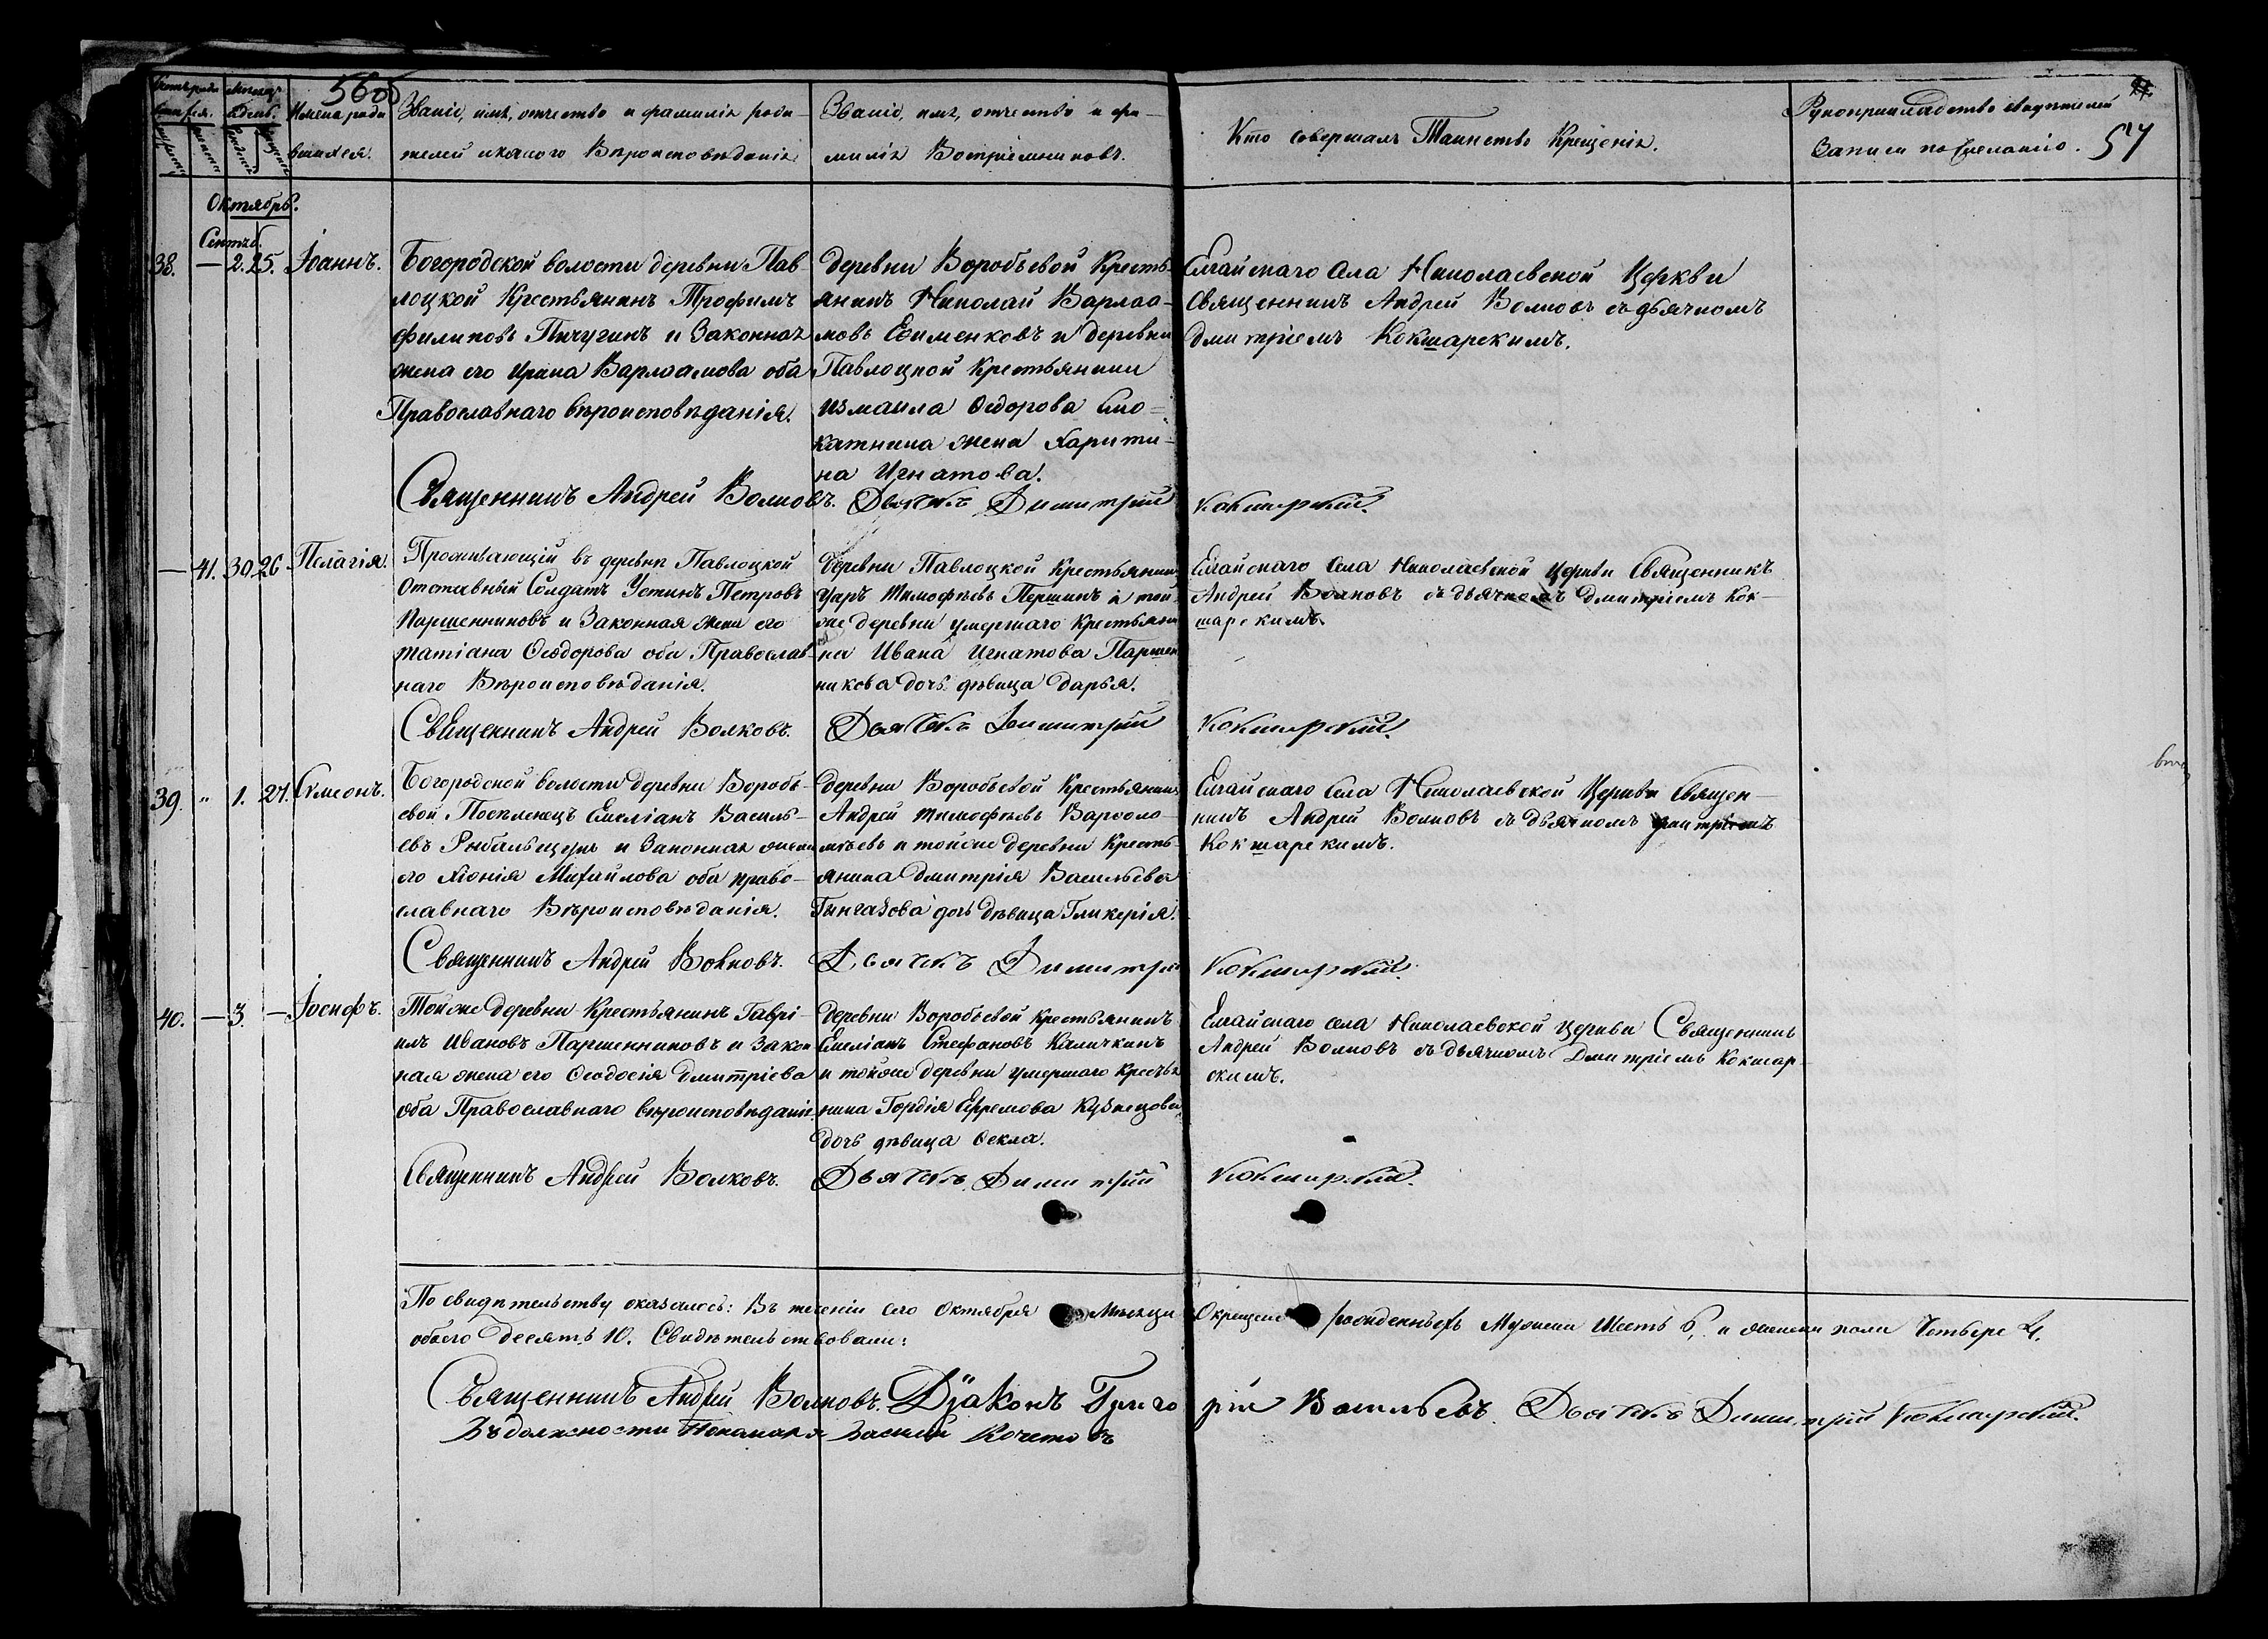 560
Счетъ роди
вшихся.
Мѣсяцъ
и день.
Имена роди
вшихся.
Званіе, имя, отчество и фамилія роди-
телей и какого Вѣроисповѣданія
Званіе, имя, отчество и фа-
милія Воспріемниковъ.
Кто совершалъ Таинство Крещенія.
Рукоприкладство свидѣтелей
Записи по желанію. 57
Октябрь.
Сентяб.
38. — 2. 25. Іоаннъ.
Богородской волости деревни Пав-
лоцкой Крестьянинъ Трофимъ
Филиповъ Пичугинъ и Законная
жена его Ирина Варлаамова оба
Православнаго вѣроисповѣданія.
деревни Воробьевой Кресть-
янинъ Николай Варлаа-
мовъ Ефименковъ и деревни
Павлоцкой Крестьянина
Измаила Ѳедорова
жена Харити-
на Игнатова.
Елгайскаго Села Николаевской Церкви
Священникъ Андрей Волковъ съ дьячкомъ
Дмитріемъ Кокшарскимъ.
Священникъ Андрей Волковъ. Дьячекъ Димитрій Кокшарскій.
— 41. 30. 26 Пелагія.
Проживающій въ деревнѣ Павлоцкой
Отставный Солдатъ Устинъ Петровъ
Паршенниковъ и Законная жена его
Татіана Ѳеодорова оба Православ-
наго Вѣроисповѣданія.
деревни Павлоцкой Крестьянинъ
Уаръ Тимофѣевъ Першинъ и той
же деревни умершаго Крестьяни
на Ивана Игнатова Паршен
никова дочь дѣвица Дарья.
Елгайскаго Села Николаевской Церкви Священникъ
Андрей Волковъ съ дьячкомъ Дмитріемъ Кок-
шарскимъ.
Священникъ Андрей Волковъ. Дьячекъ Димитрій Кокшарскій.
39. " 1. 27. Сѵмеонъ.
Богородской волости деревни Воробь-
евой Поселенецъ Емеліанъ Василь-
евъ Рыбальцецъ и Законная жена
его Хіонія Михайлова оба право-
славнаго Вѣроисповѣданія.
деревни Воробьевой Крестьянинъ
Андрей Тимофѣевъ Варѳоло-
мѣевъ и тойже деревни Кресть-
янина Дмитрія Васильева
Гынгазова дочь Дѣвица Гликерія.
Елгайскаго Села Николаевской Церкви Священ-
никъ Андрей Волковъ съ дьячкомъ Дмитріемъ
Кокшарскимъ.
Священникъ Андрей Волковъ. Дьячекъ Димитрій Кокшарскій.
40. — 3. — Іосифъ.
Тойже деревни Крестьянинъ Гаврі-
илъ Ивановъ Паршенниковъ и Закон
ная жена его Ѳеодосія Дмитріева
оба Православнаго вѣроисповѣданія.
деревни Воробьевой Крестьянинъ
Емеліанъ Стефановъ Каличкинъ
и тойже деревни умершаго Крестья
нина Гордія Ефремова Кузнецова
дочь дѣвица Ѳекла.
Елгайскаго села Николаевской Церкви Священникъ
Андрей Волковъ съ дьячкомъ Дмитріемъ Кокшар-
скимъ.
Священникъ Андрей Волковъ. Дьячекъ Димитрій Кокшарскій.
По свидѣтельству оказалось: Въ теченіи сего Октября Мѣсяца Окрещено рожденныхъ Мужеска Шесть 6, и женска пола Четыре 4.
обоего Десять 10. Свидѣтельствовали:
Священникъ Андрей Волковъ. Діаконъ Григорій Васильевъ. Дьячекъ Димитрій Кокшарскій.
Въ должности Пономаря Василій Кочетовъ